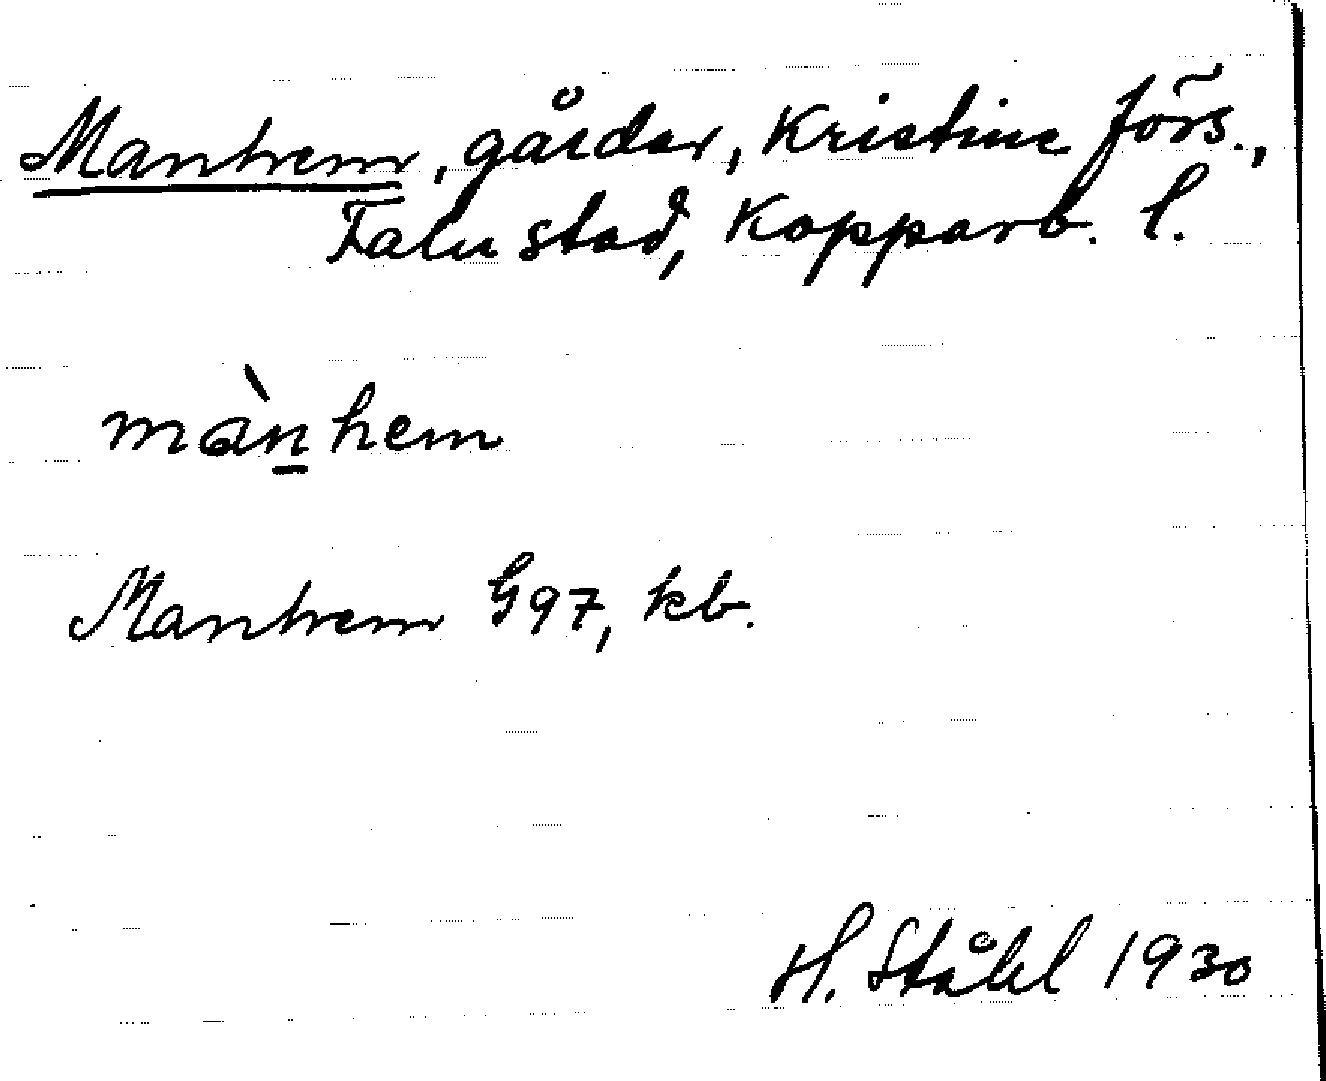 Manhem, gårdar, Kristine förs.,
Falu stad, Kopparb. l.
mànhem
Manhem G97, kb.
H. Ståhl 1930